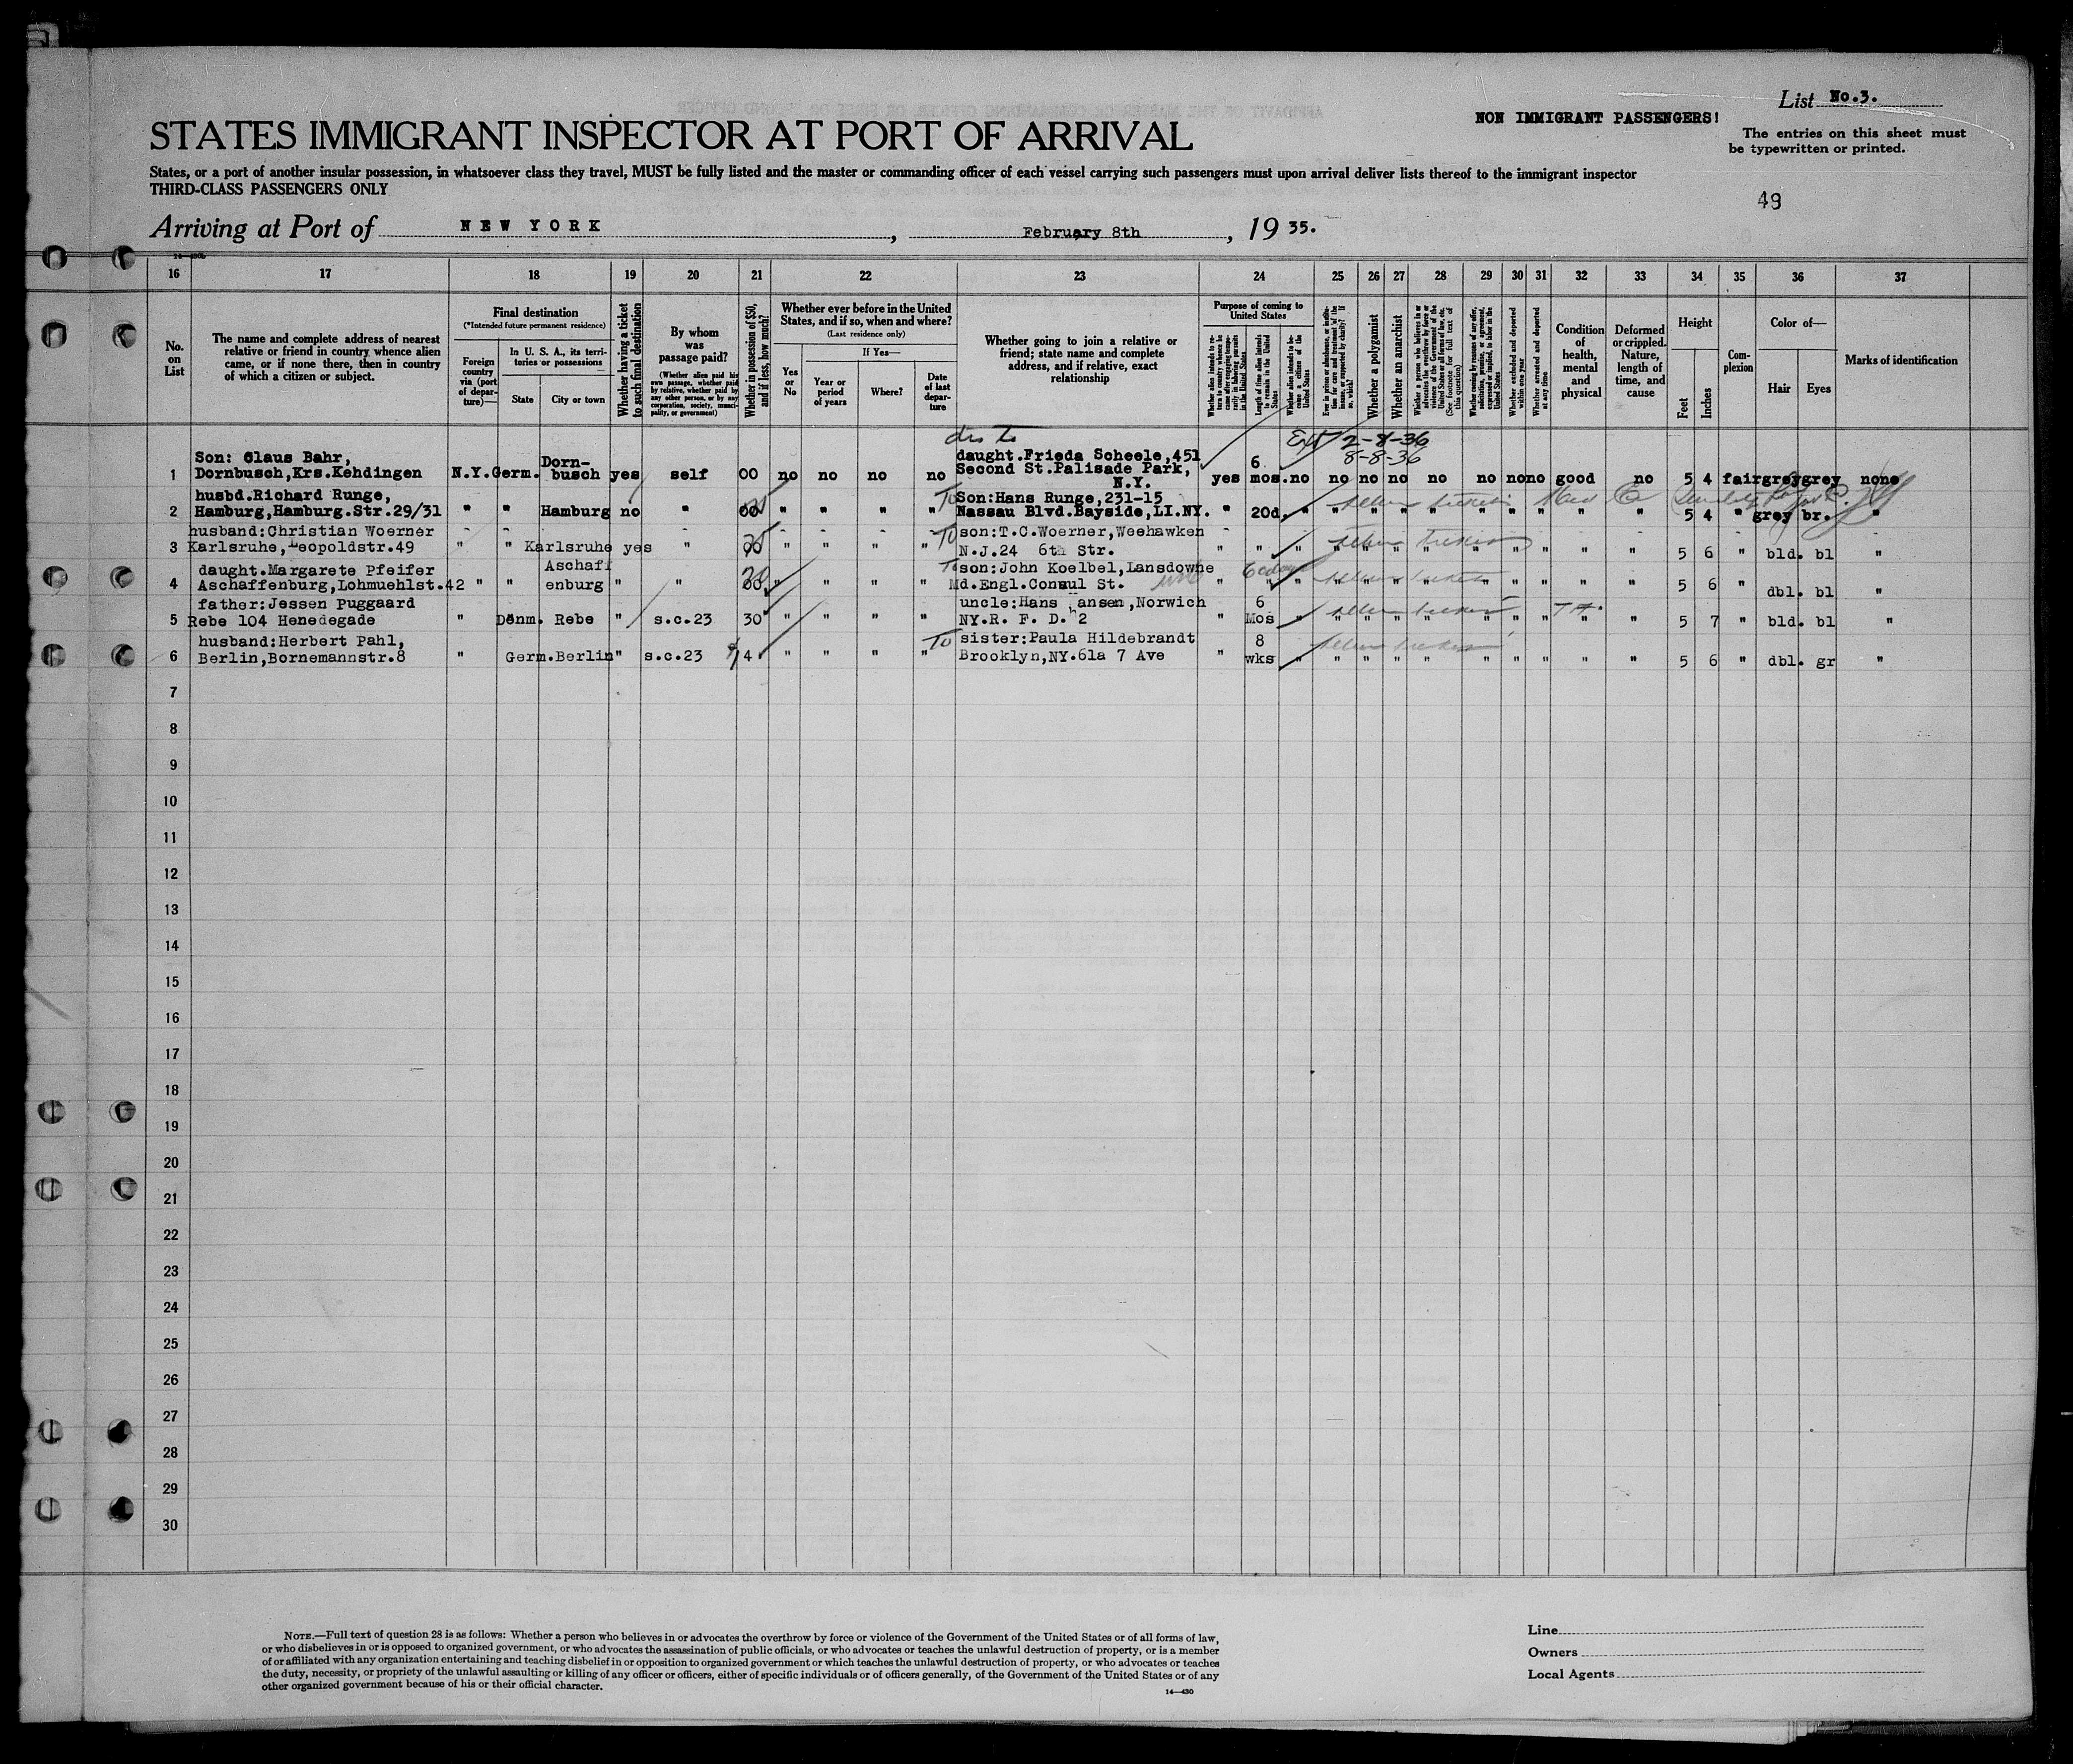 List No.3.
NON IMMIGRANT PASSENGERS!
The entries on this sheet must
be typewritten or printed.
STATES IMMIGRANT INSPECTOR AT PORT OF ARRIVAL
States, or a port of another insular possession, in whatsoever class they travel, MUST be fully listed and the master or commanding officer of each vessel carrying such passengers must upon arrival deliver lists thereof to the immigrant inspector
THIRD-CLASS PASSENGERS ONLY
49
Arriving at Port of NEW YORK, February 8th, 19 35.
16 17 18 19 20 21 22 23 24 25 26 27 28 29 30 31 32 33 34 35 36 37
No. on List
The name and complete address of nearest
relative or friend in country whence alien
came, or if none there, then in country
of which a citizen or subject.
Final destination
(*Intended future permanent residence)
Foreign country via (port of departure)—
In U. S. A., its territories or possessions
State
City or town
Whether having a ticket to such final destination
By whom was passage paid?
(Whether alien paid his own passage, whether paid by relative, whether paid by any other person, or by any corporation, society, municipality, or government)
Whether in possession of $50, and if less, how much?
Whether ever before in the United States, and if so, when and where?
(Last residence only)
Yes or No
If Yes—
Year or period of years
Where?
Date of last departure
Whether going to join a relative or
friend; state name and complete
address, and if relative, exact
relationship
Purpose of coming to United States
Whether alien intends to return to country whence he came after engaging temporarily in laboring pursuits in the United States
Length of time alien intends to remain in the United States
Whether alien intends to become a citizen of the United States
Whether a polygamist
Whether an anarchist
Whether excluded and deported within one year
Whether arrested and deported at any time
Condition of health, mental and physical
Deformed or crippled. Nature, length of time, and cause
Height
Feet
Inches
Complexion
Color of—
Hair
Eyes
Marks of identification
2-8-36
8-8-36
1 Son: Claus Bahr,
Dornbusch,Krs.Kehdingen N.Y. Germ. Dorn-
busch yes self 00 no no no no daught.Frieda Scheele,451
Second St.Palisade Park,
N.Y. yes 6 mos. no no no no no no no no good no 5 4 fair grey grey none
2 husbd.Richard Runge,
Hamburg,Hamburg.Str.29/31 " " Hamburg no " " " " " To Son:Hans Runge,231-15
Nassau Blvd.Bayside,LI.NY. " 20d. " " " " " " " " " " 5 4 " grey br. "
3 husband:Christian Woerner
Karlsruhe,Leopoldstr.49 " " Karlsruhe yes " " " " " To son:T.C.Woerner,Weehawken
N.J.24 6th Str. " " " " " " " " " " " " 5 6 " bld. bl "
4 daught.Margarete Pfeifer
Aschaffenburg,Lohmuehlst.42 " " Aschaff
enburg " " " " " " To son:John Koelbel,Lansdowne
Md.Engl.Consul St. " " " " " " " " " " " 5 6 " dbl. bl "
5 father:Jessen Puggaard
Rebe 104 Henedegade " Dänm. Rebe " s.c.23 30 " " " " uncle:Hans Hansen,Norwich
NY.R. F. D. 2 " 6 Mos " " " " " " " " " " 5 7 " bld. bl "
6 husband:Herbert Pahl,
Berlin,Bornemannstr.8 " Germ. Berlin " s.c.23 14 " " " " To sister:Paula Hildebrandt
Brooklyn,NY.61a 7 Ave " 8 wks " " " " " " " " " " 5 6 " dbl. gr "
7
8
9
10
11
12
13
14
15
16
17
18
19
20
21
22
23
24
25
26
27
28
29
30
NOTE.—Full text of question 28 is as follows: Whether a person who believes in or advocates the overthrow by force or violence of the Government of the United States or of all forms of law,
or who disbelieves in or is opposed to organized government, or who advocates the assassination of public officials, or who advocates or teaches the unlawful destruction of property, or is a member
of or affiliated with any organization entertaining and teaching disbelief in or opposition to organized government or which teaches the unlawful destruction of property, or who advocates or teaches
the duty, necessity, or propriety of the unlawful assaulting or killing of any officer or officers, either of specific individuals or of officers generally, of the Government of the United States or of any
other organized government because of his or their official character.
14—430
Line
Owners
Local Agents